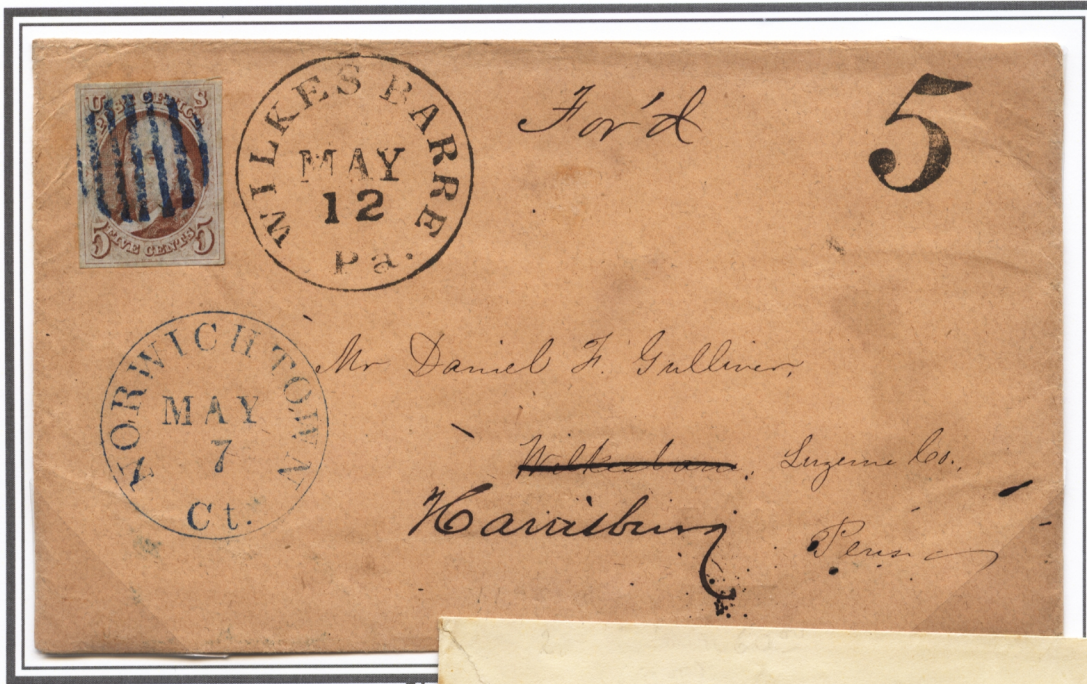 U S
POST OFFICE
5 FIVE CENTS 5
WILKES BARRE
MAY
12
Pa.
For'd
5
NORWICH TOWN
MAY
7
Ct.
Mr Daniel F. Gulliver,
Wilkesbarre, Luzerne Co.,
Harrisburg
Penna